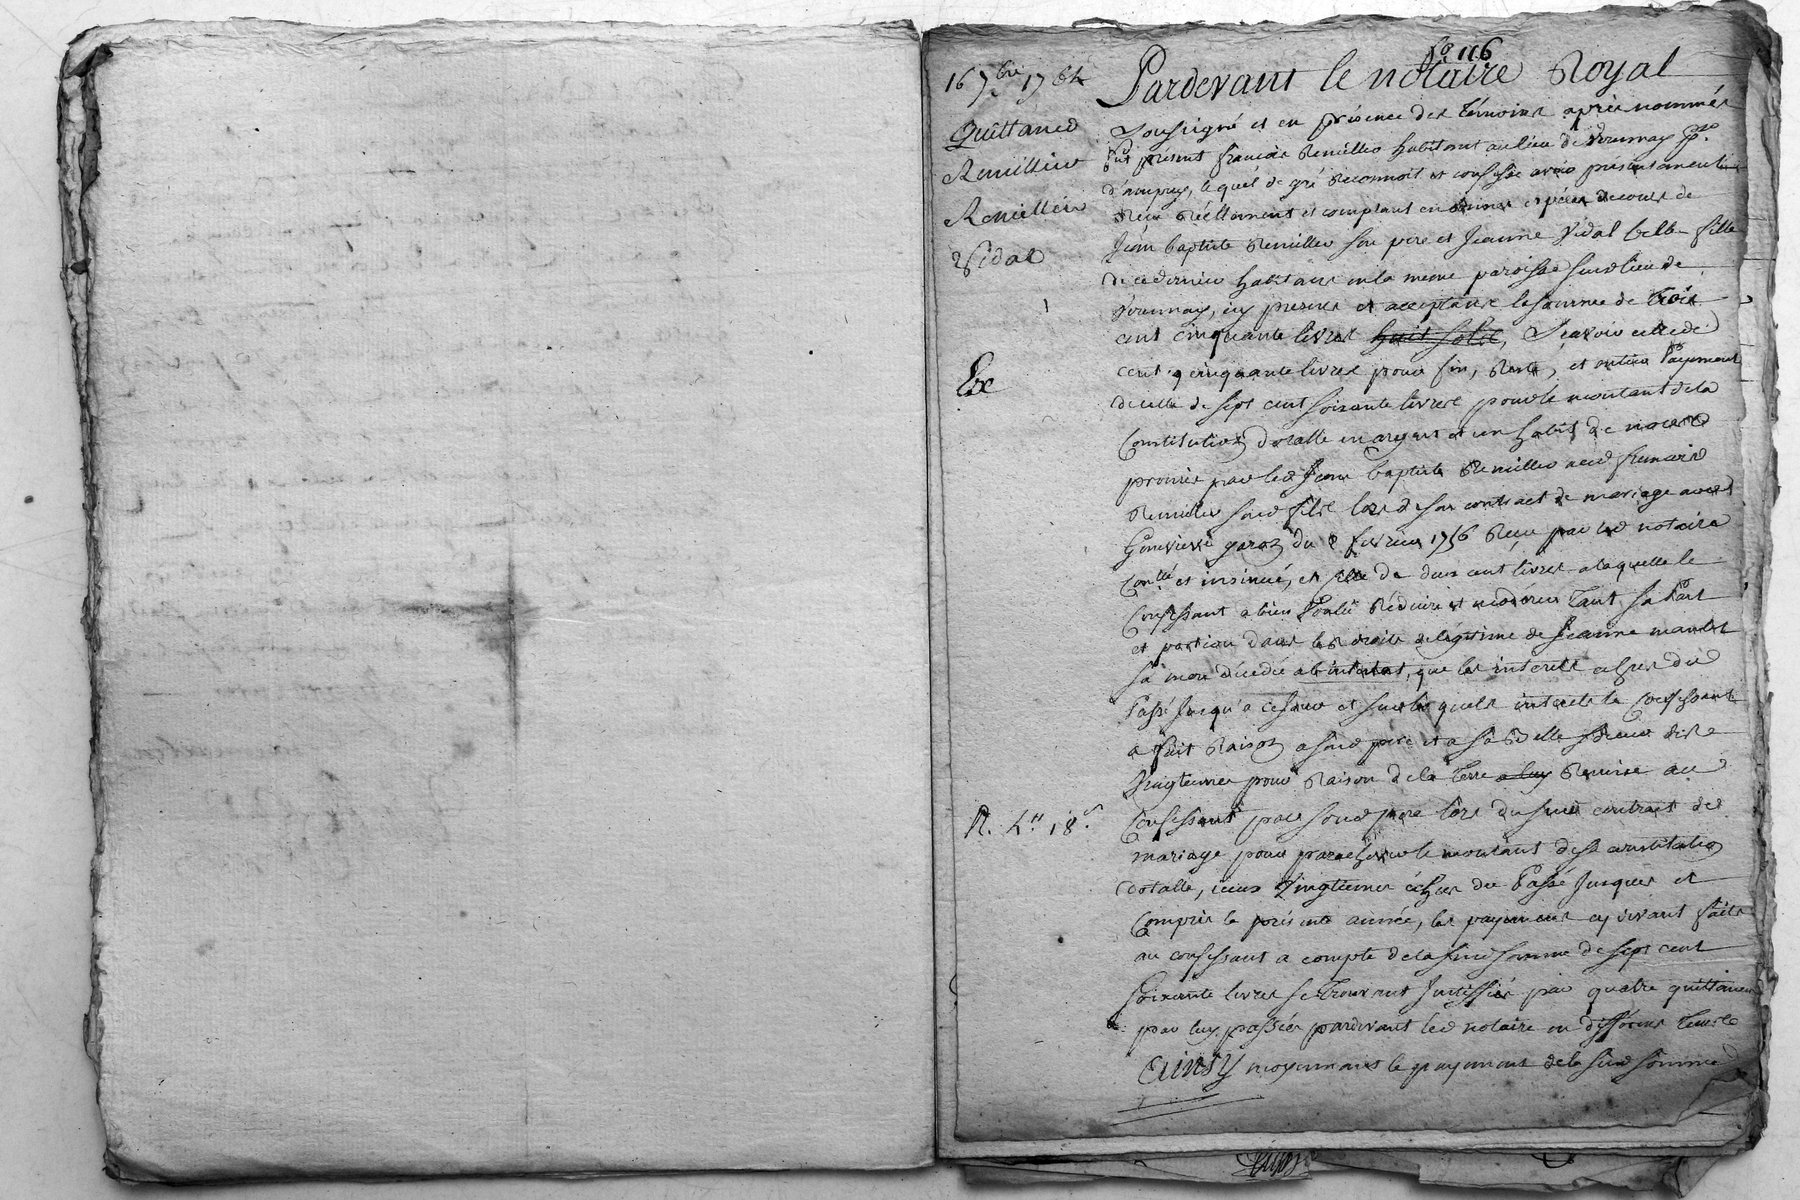 fo 116
16 7bre 1764
Quittance
Remillieu
Remillieu
Vidal
Ex
R. 4tt 18s.
Pardevant le notaire Royal
Soussigné et en présence des témoins après nommés
fut présent françois Remillieu habitant au lieu de psse
d'ampuys, lequel de gré Reconnoit et confesse avoir présentement
Reçu Réellement et comptant en bonnes espèces de cours de
Jean baptiste Remillieu son pere et Jeanne Vidal belle fille
de ce dernier habitans en la meme paroisse susd lieu de
cy presens et acceptants la somme de trois
cent cinquante livres huit sols, Sçavoir celle de
cent cinquante livres pour fin, Reste, et entier Payement
de celle de sept cent soixante livres pour le montant de la
Constitution dotalle en argent et un habit de noces
promis par led Jean baptiste Remillieu aud françois
Remillieu soud fils lors de son contract de mariage avec
Genevieve du 8 fevrier 1756 Reçu par led notaire
Conllé et insinué, et celle de deux cent livres a laquelle le
Confessant a bien Voulu Réduire et moderer tant sa Part
et portion dans les droits de légitime de Jeanne
sa mere décédée ab intestat, que les interets echus du
Passé Jusqu'a ce Jour et sur lesquels interets le Confessant
a fait Raison a soud pere et a sad belle sœur des
Vingtiemes pour Raison de la terre a luy Remise au
Confessant par soud pere lors du susd contract de
mariage pour parachever le montant desd constitution
dotalle, iceux Vingtiemes échus du Passé Jusques et
Compris la présente année, les payemens cy devant faits
au confessant a compte de la susd somme de sept cent
soixante livres se trouvant Justiffiés par quatre quittances
par luy passées pardevant led notaire en differens tems
Ainsy moyennant le payement de la susd somme